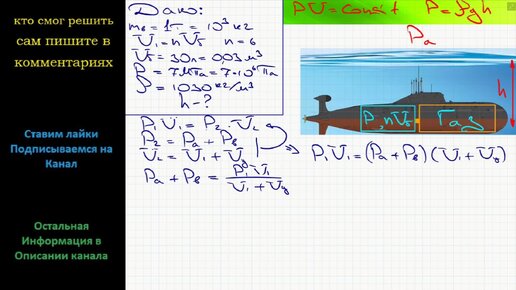 кто смог решить
сам пишите в
комментариях
Ставим лайки
Подписываемся на
Канал
Остальная
Информация в
Описании канала
Дано:
m_в = 1т = 10³ кг
V₁ = nV₅ n = 6
V₅ = 30л = 0,03 м³
P = 7МПа = 7·10⁶ Па
ρ = 1030 кг/м³
h - ?
PV = const P = ρgh
Pa
h
P, nV₅
Газ
P₁V₁ = P₂V₂
P₂ = Pa + Pв
V₂ = V₁ + Vg
⇒ P₁V₁ = (Pa + Pв)(V₁ + Vg)
Pa + Pв = P₁V₁ / V₁ + Vg